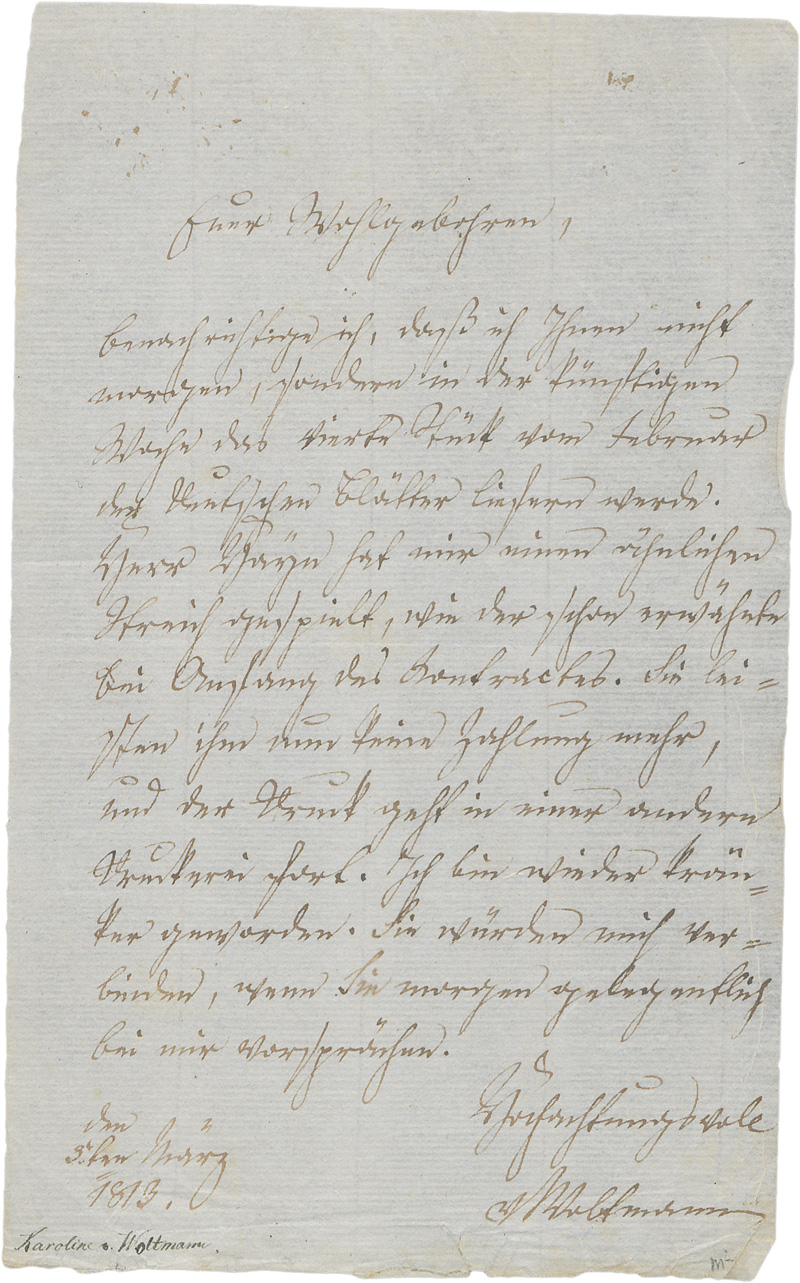 Euer Wohlgebohren,
benachrichtige ich, daß ich Ihnen nicht
morgen, sondern in der künftigen
Woche das vierte Stück vom Februar
der Deutschen Blätter liefern werde.
Herr Hayn hat mir einen ähnlichen
Streich gespielt, wie der schon erwähnte
bei Anfang des Kontractes. Sie lei=
sten ihm nun keine Zahlung mehr,
und der Druck geht in einer andern
Druckerei fort. Ich bin wieder krän=
ker geworden. Sie würden mich ver=
binden, wenn Sie morgen gelegentlich
bei mir vorsprächen.
Hochachtungsvoll
den
5ten März
1813.
vWoltmann
Karoline v. Woltmann.